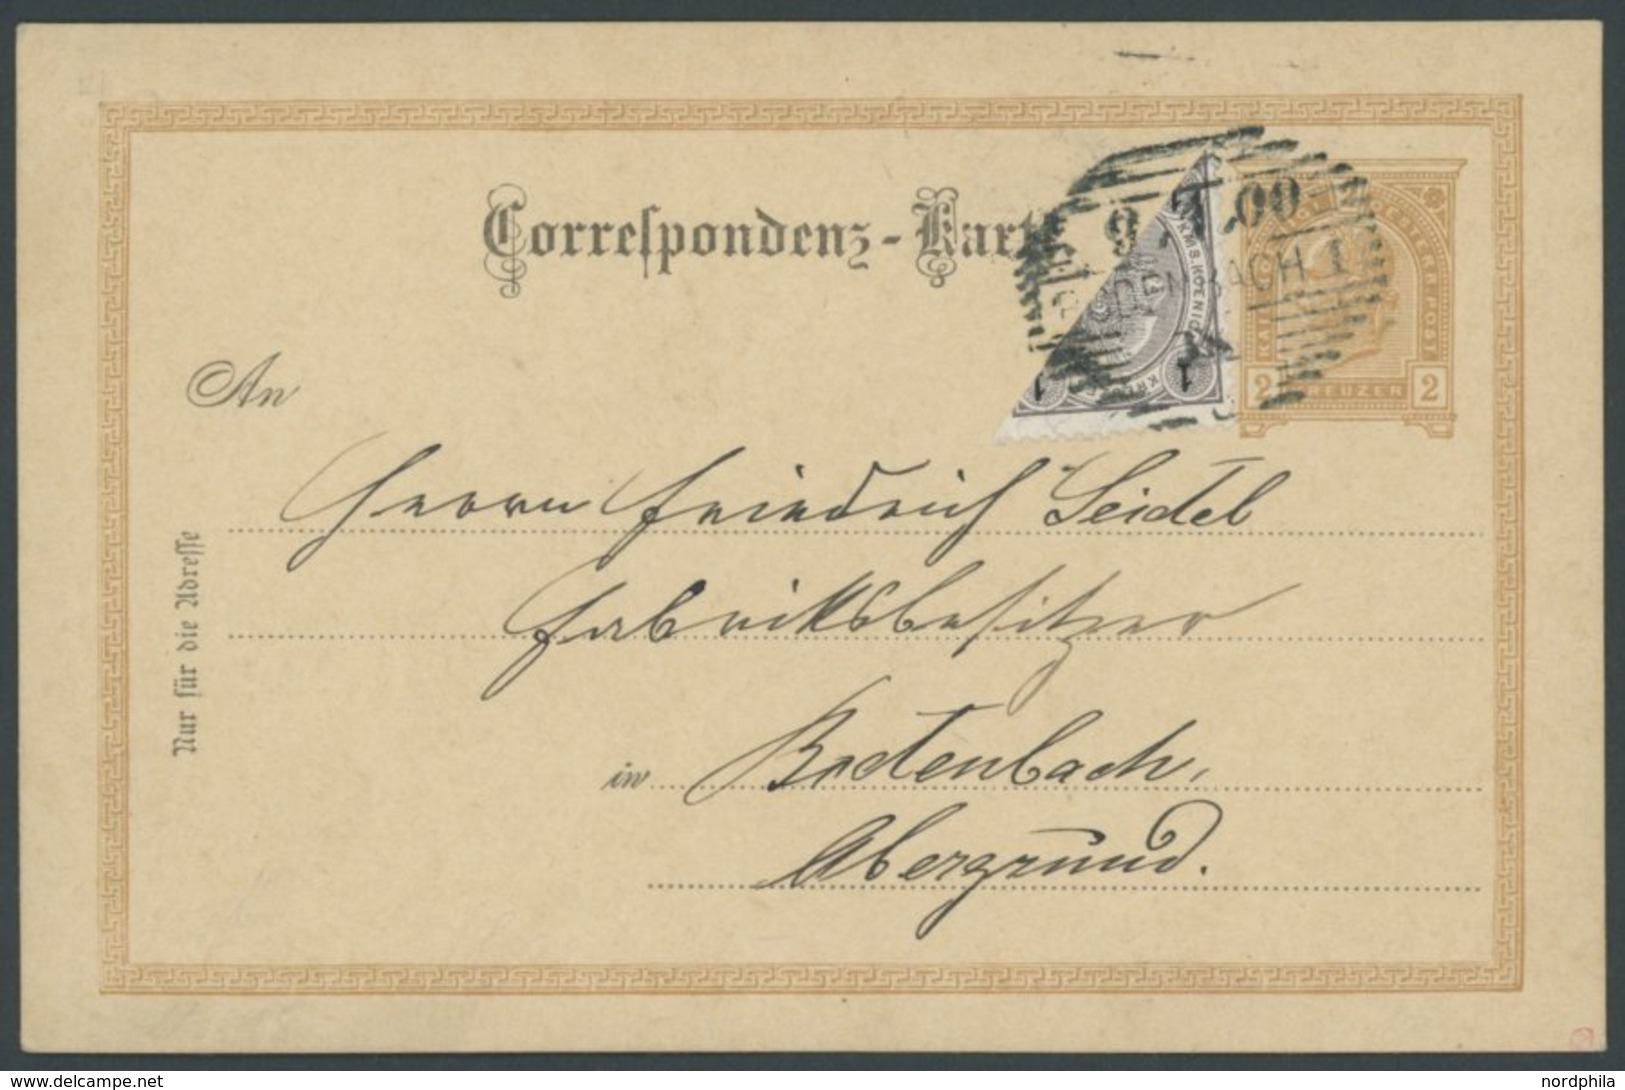 Correspondenz-Karte
9. 00
BODENBACH 1
K.M.S. KOENIG
1 1
2 KREUZER 2
An
Herrn Friedrich Seidel
Nur für die Adresse
Fabriksbesitzer
in Bodenbach,
Obergrund.
www.delcampe.net
nordphila